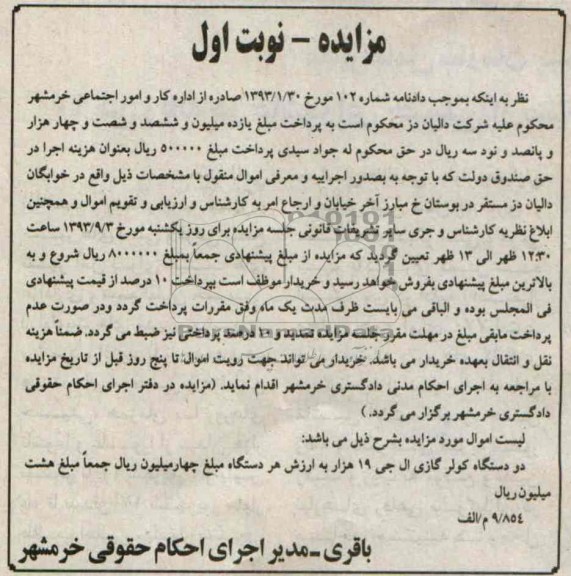 مزایده - نوبت اول
نظر به اینکه بموجب دادنامه شماره ۱۰۲ مورخ ۱۳۹۳/۱/۳۰ صادره از اداره کار و امور اجتماعی خرمشهر
محکوم علیه شرکت دالیان دز محکوم است به پرداخت مبلغ یازده میلیون و ششصد و شصت و چهار هزار
و پانصد و نود سه ریال در حق محکوم له جواد سیدی پرداخت مبلغ ۵۰۰۰۰۰ ریال بعنوان هزینه اجرا در
حق صندوق دولت که با توجه به بصدور اجراییه و معرفی اموال منقول با مشخصات ذیل واقع در خوابگان
دالیان دز مستقر در بوستان خ مبارز آخر خیابان و ارجاع امر به کارشناس و ارزیابی و تقویم اموال و همچنین
ابلاغ نظریه کارشناس و جری سایر تشریفات قانونی جلسه مزایده برای روز یکشنبه مورخ ۱۳۹۳/۹/۳ ساعت
۱۲:۳۰ ظهر الی ۱۳ ظهر تعیین گردید که مزایده از مبلغ پیشنهادی جمعاً بمبلغ ۸۰۰۰۰۰۰ ریال شروع و به
بالاترین مبلغ پیشنهادی بفروش خواهد رسید و خریدار موظف است بپرداخت ۱۰ درصد از قیمت پیشنهادی
فی المجلس بوده و الباقی می بایست ظرف مدت یک ماه وفق مقررات پرداخت گردد ودر صورت عدم
پرداخت مابقی مبلغ در مهلت مقرر جلسه مزایده تمدید و ۱۰ درصد پرداختی نیز ضبط می گردد. ضمناً هزینه
نقل و انتقال بعهده خریدار می باشد. خریدار می تواند جهت رویت اموال تا پنج روز قبل از تاریخ مزایده
با مراجعه به اجرای احکام مدنی دادگستری خرمشهر اقدام نماید. (مزایده در دفتر اجرای احکام حقوقی
دادگستری خرمشهر برگزار می گردد.)
لیست اموال مورد مزایده بشرح ذیل می باشد:
دو دستگاه کولر گازی ال جی ۱۹ هزار به ارزش هر دستگاه مبلغ چهارمیلیون ریال جمعاً مبلغ هشت
میلیون ریال
۹/۸۵۴ م/الف
باقری - مدیر اجرای احکام حقوقی خرمشهر